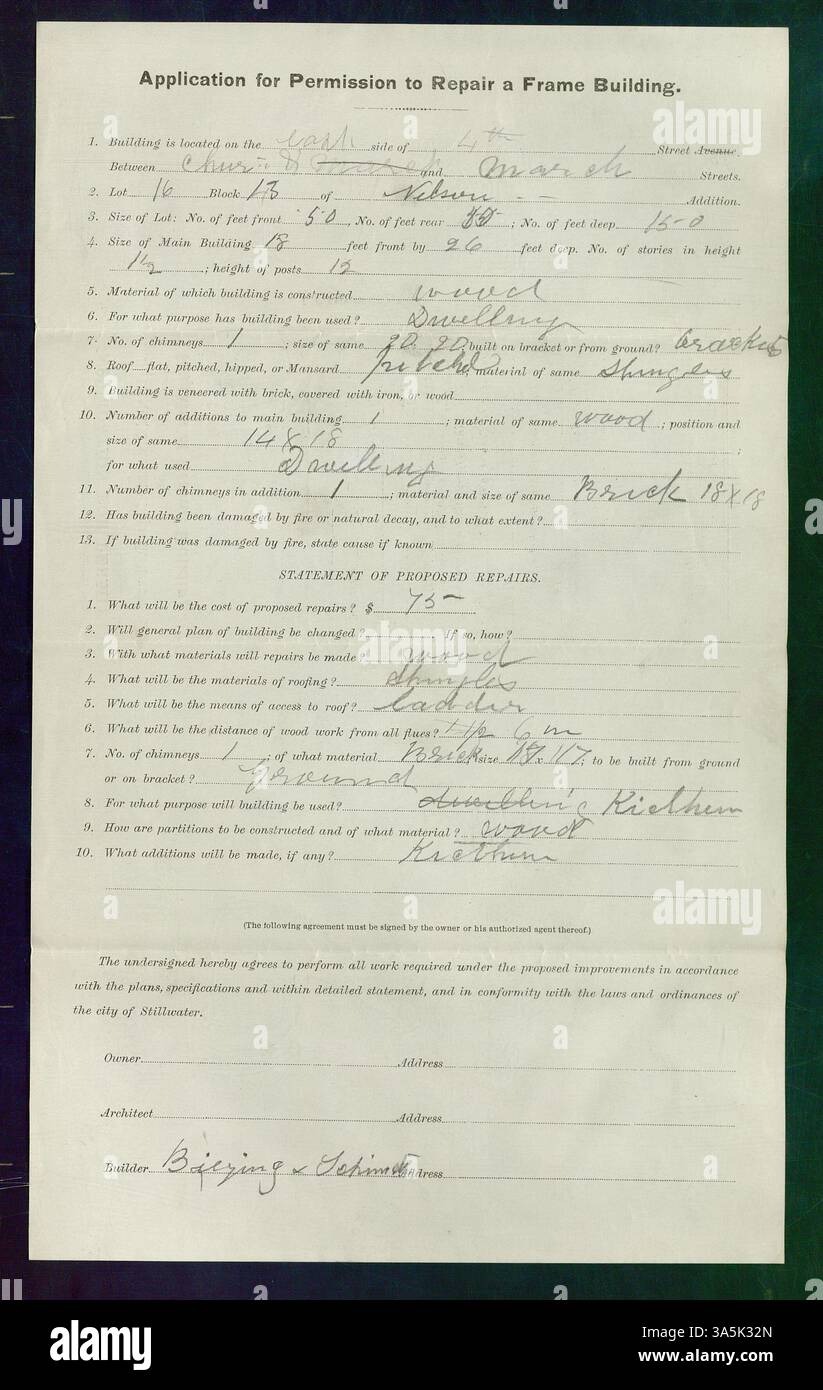 Application for Permission to Repair a Frame Building.
1. Building is located on the east side of 4th Street Avenue.
Between Church March and March Streets.
2. Lot 16 Block 13 of Nelson Addition.
3. Size of Lot: No. of feet front 50, No. of feet rear ; No. of feet deep 150
4. Size of Main Building 18 feet front by 26 feet deep. No. of stories in height
1 1/2; height of posts 12
5. Material of which building is constructed wood
6. For what purpose has building been used? Dwelling
7. No. of chimneys 1; size of same 20 20; built on bracket or from ground? brackets
8. Roof flat, pitched, hipped, or Mansard pitched; material of same Shingles
9. Building is veneered with brick, covered with iron, or wood
10. Number of additions to main building 1; material of same wood; position and
size of same 14 x 18;
for what used Dwelling
11. Number of chimneys in addition 1; material and size of same Brick 18 x 18
12. Has building been damaged by fire or natural decay, and to what extent?
13. If building was damaged by fire, state cause if known
STATEMENT OF PROPOSED REPAIRS.
1. What will be the cost of proposed repairs? $ 75-
2. Will general plan of building be changed? If so, how?
3. With what materials will repairs be made? wood
4. What will be the materials of roofing? Shingles
5. What will be the means of access to roof? Ladder
6. What will be the distance of wood work from all flues? 1 1/2 6 in
7. No. of chimneys 1; of what material Brick size 17 x 17; to be built from ground
or on bracket? Ground
8. For what purpose will building be used? dwelling Kicthen
9. How are partitions to be constructed and of what material? wood
10. What additions will be made, if any? Kicthen
(The following agreement must be signed by the owner or his authorized agent thereof.)
The undersigned hereby agrees to perform all work required under the proposed improvements in accordance
with the plans, specifications and within detailed statement, and in conformity with the laws and ordinances of
the city of Stillwater.
Owner Address
Architect Address
Builder Address
alamy
Image ID: 3A5K32N
www.alamy.com